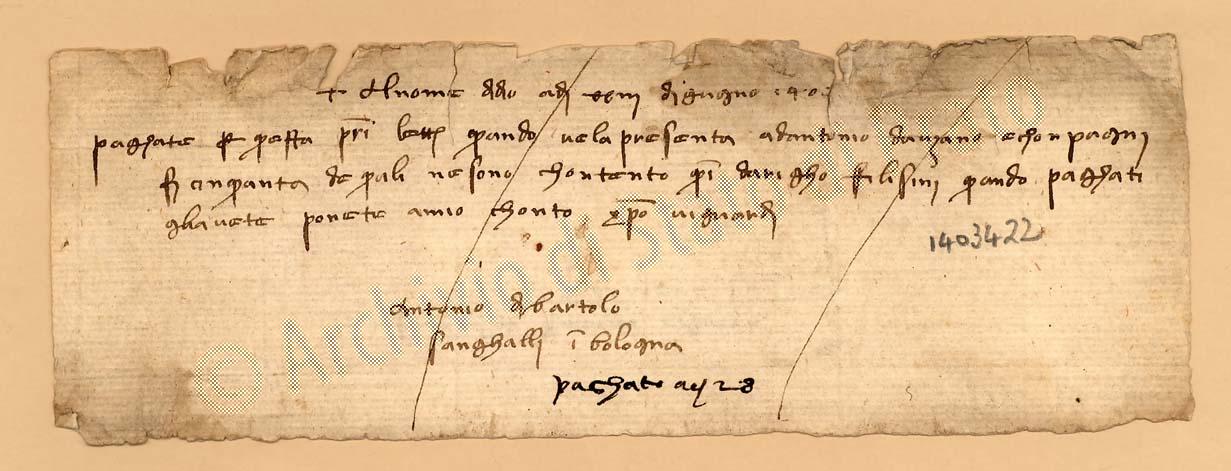 + Al nome ddio adi xxiii di gugno 140
paghate per questa prima lettera quando ve la presenta ad antonio e chonpagni
fi cinquanta de quali ne sono chontento qui darigho quando paghati
gliavete ponete a mio chonto xpo vi guardi
1403422
antonio di bartolo
sanghalli i bologna
paghato adj 28
© Archivio di Stato di Prato